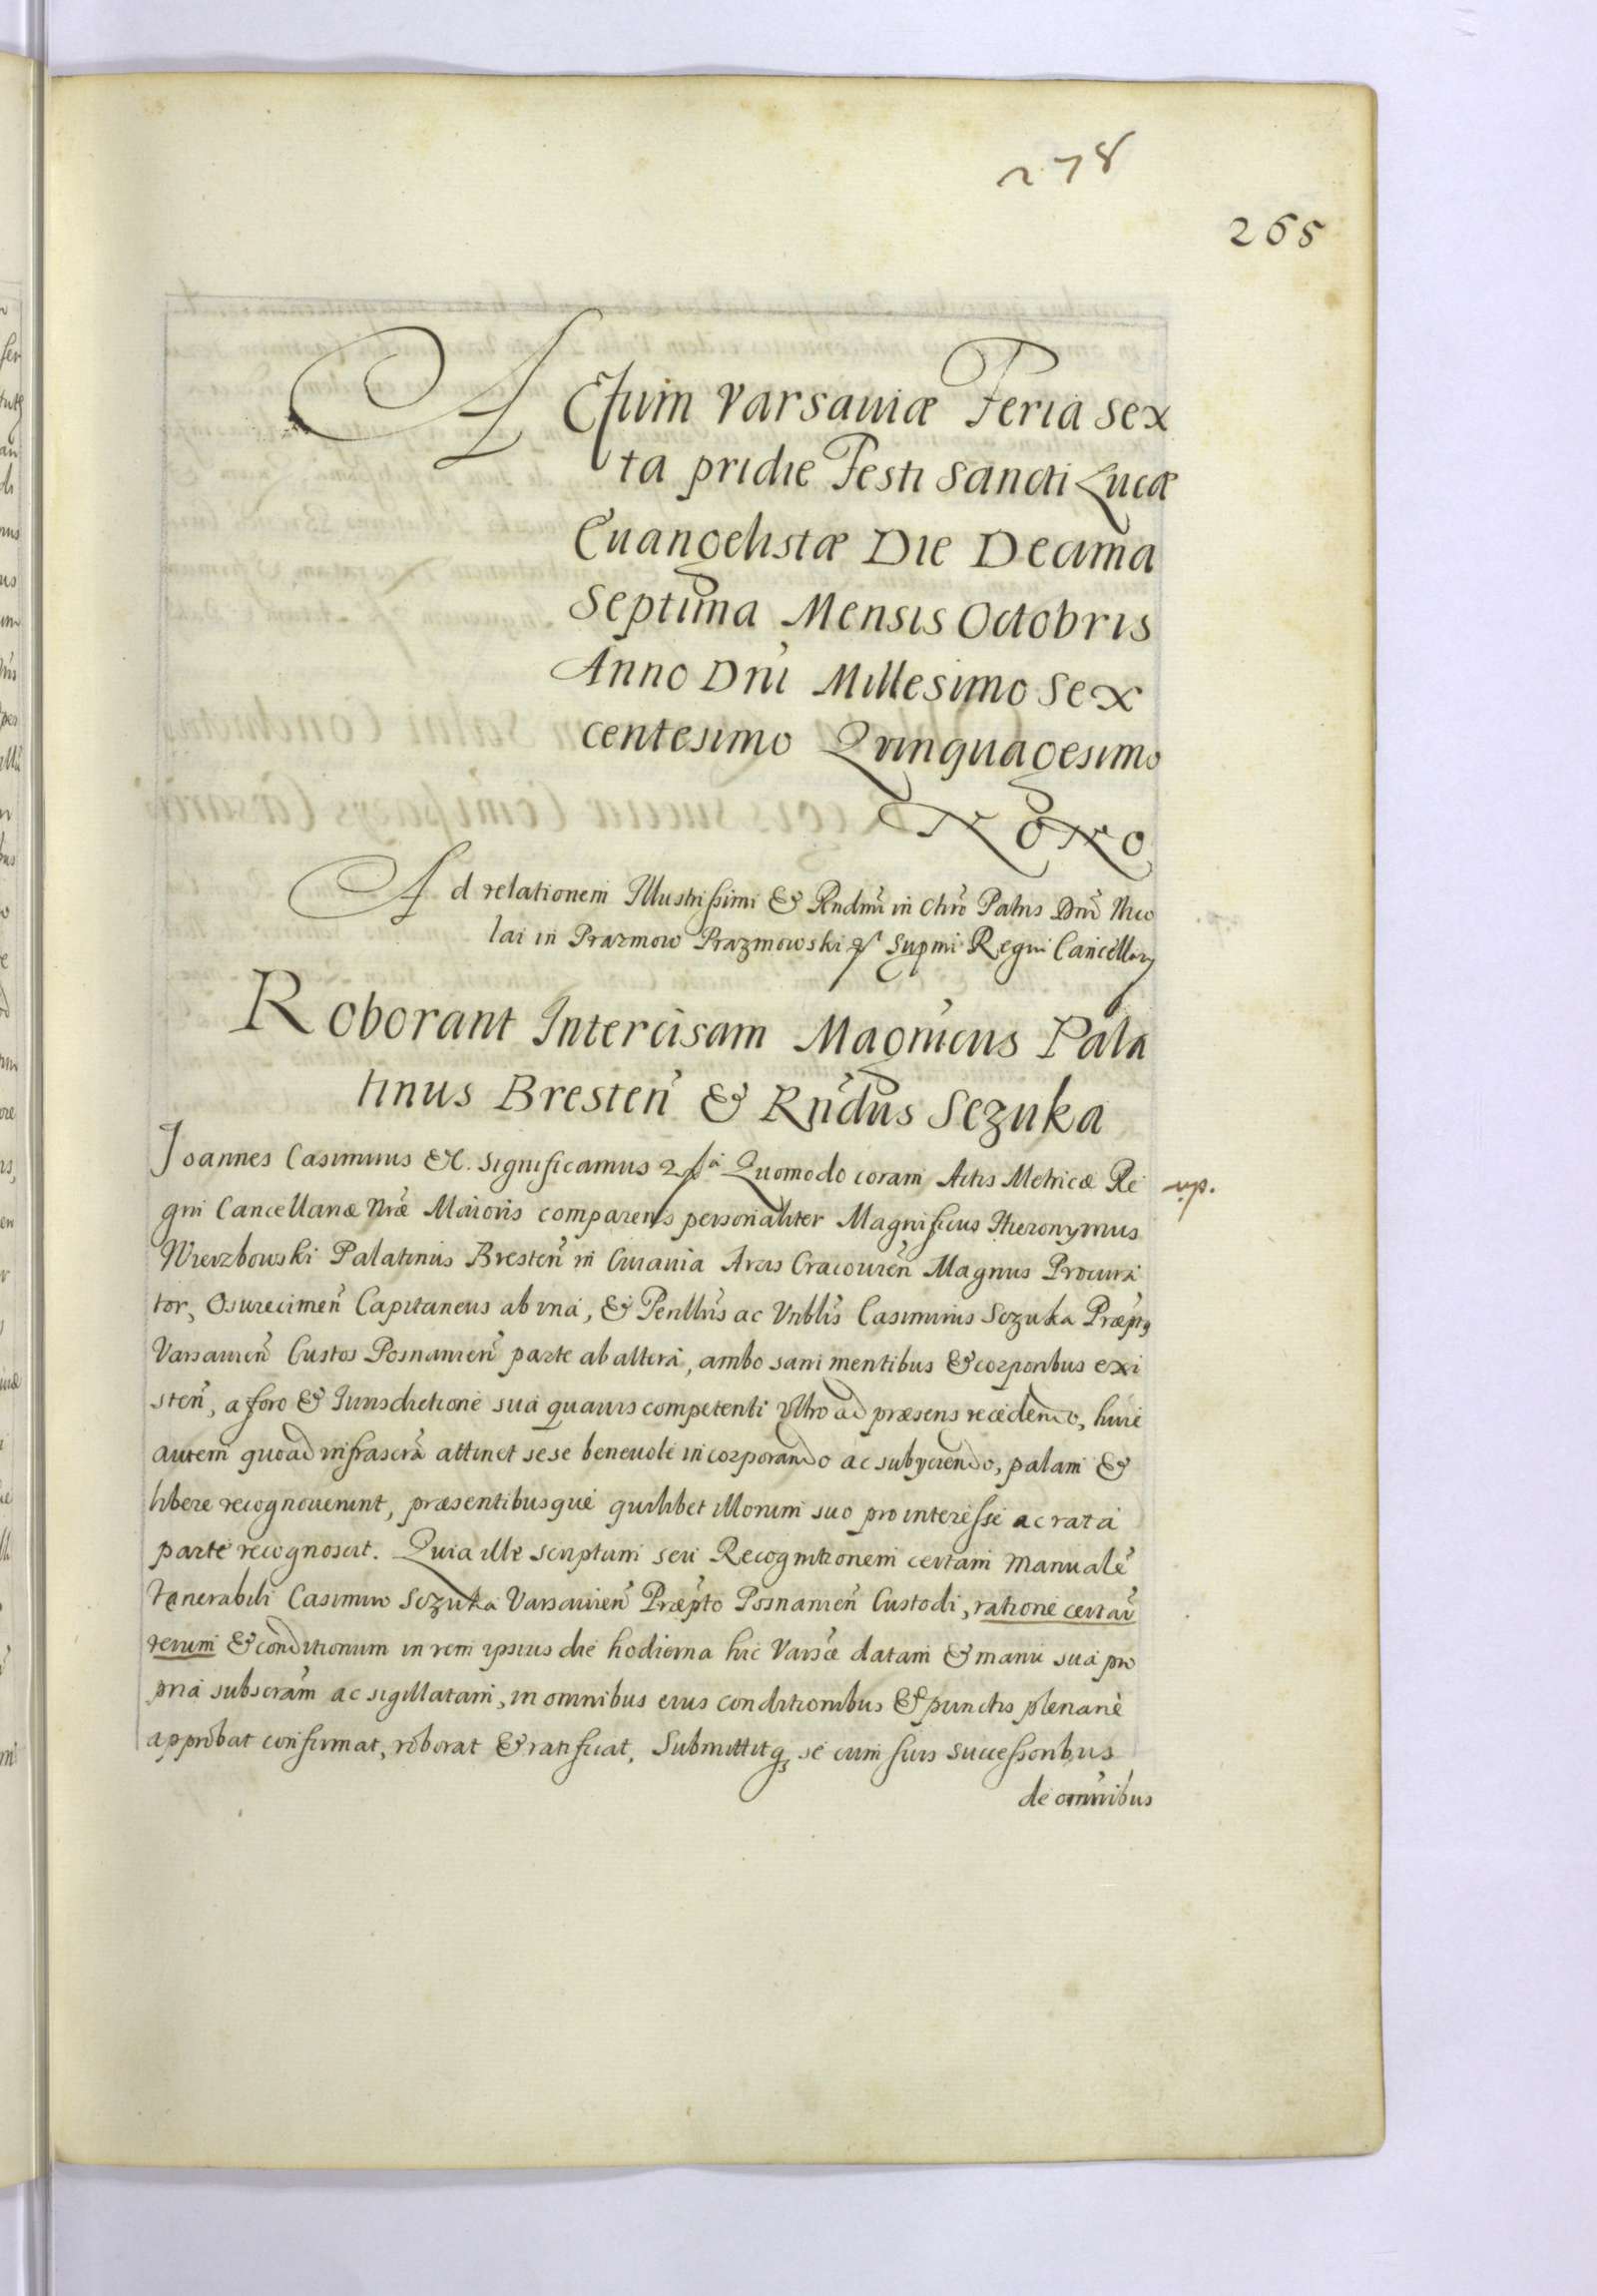 278
265
ACtum Varsauiæ Feria Sex
ta pridie Festi Sancti Lucæ
Euangelistæ Die Decima
Septima Mensis Octobris
Anno Dni Millesimo Sex
centesimo Quinquagesimo
Nono
Ad relationem Illustrissimi & Rndmi in Chro Patris Dni Nico
lai in Prazmow Prazmowski Supmi Regni Cancellary
Roborant Intercisam Magnicus Pala
tinus Bresten & Rndus Sezuka
Joannes Casimirus &c. Significamus Quomodo coram Actis Metricæ Re
gni Cancellariæ Nræ Maioris comparens personaliter Magnificus Hieronymus
Wierzbowski Palatinus Bresten in Cuiauia Arcis Cracouien Magnus Procura
tor, Osuiecimen Capitaneus ab vna, & Perillris ac Vnblis Casimirus Sezuka Præptus
Varsauien Custos Posnanien parte ab altera, ambo sani mentibus & corporibus exi
sten, a foro & Iurisdictione sua quauis competenti vltro ad præsens recedendo, huic
autem quoad infrascra attinet sese beneuole incorporando ac subyciendo, palam &
libere recognouerunt, præsentibusque quilibet illorum suo pro interesse ac rata
parte recognoscit. Quia ille scriptum seu Recognitionem certam manuale
Venerabili Casimiro Sezuka Varsauien Præpto Posnanien Custodi, ratione certar
rerum & conditionum in rem ipsius die hodierna hic Varsæ datam & manu sua pro
pria subscram ac sigillatam, in omnibus eius conditionibus & punctis plenarie
approbat confirmat, roborat & ratificat, Submittitq se cum suis successoribus
de omnibus